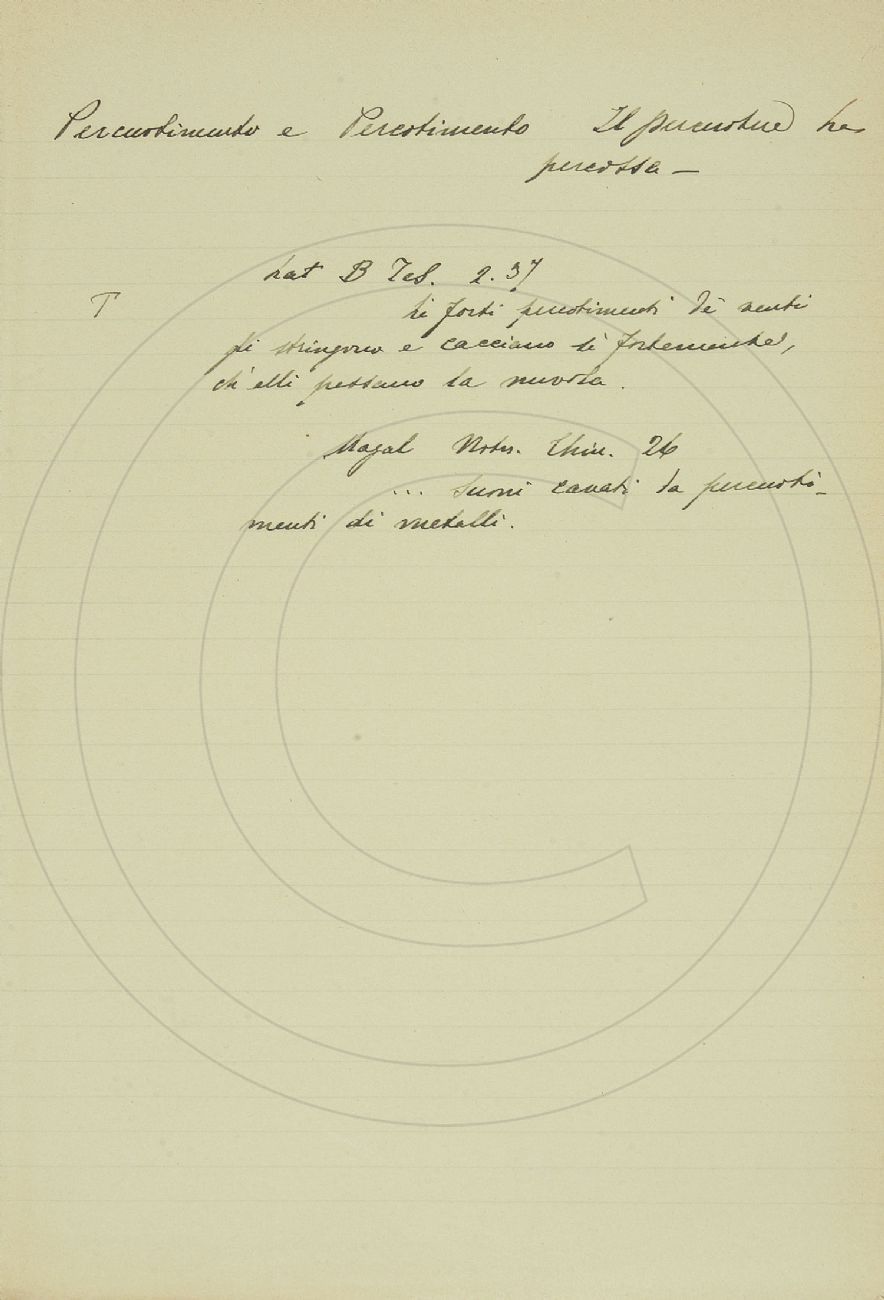 Percuotimento e Percotimento Il percuotere
percossa —
Lat B Tes. 2. 37
T
Li forti percotimenti de' venti
li stringono e cacciano sì fortemente,
ch' elli passano la nuvola.
Magal Notiz. Chin. 26
... Suoni cavati da percuoti-
menti di metalli.